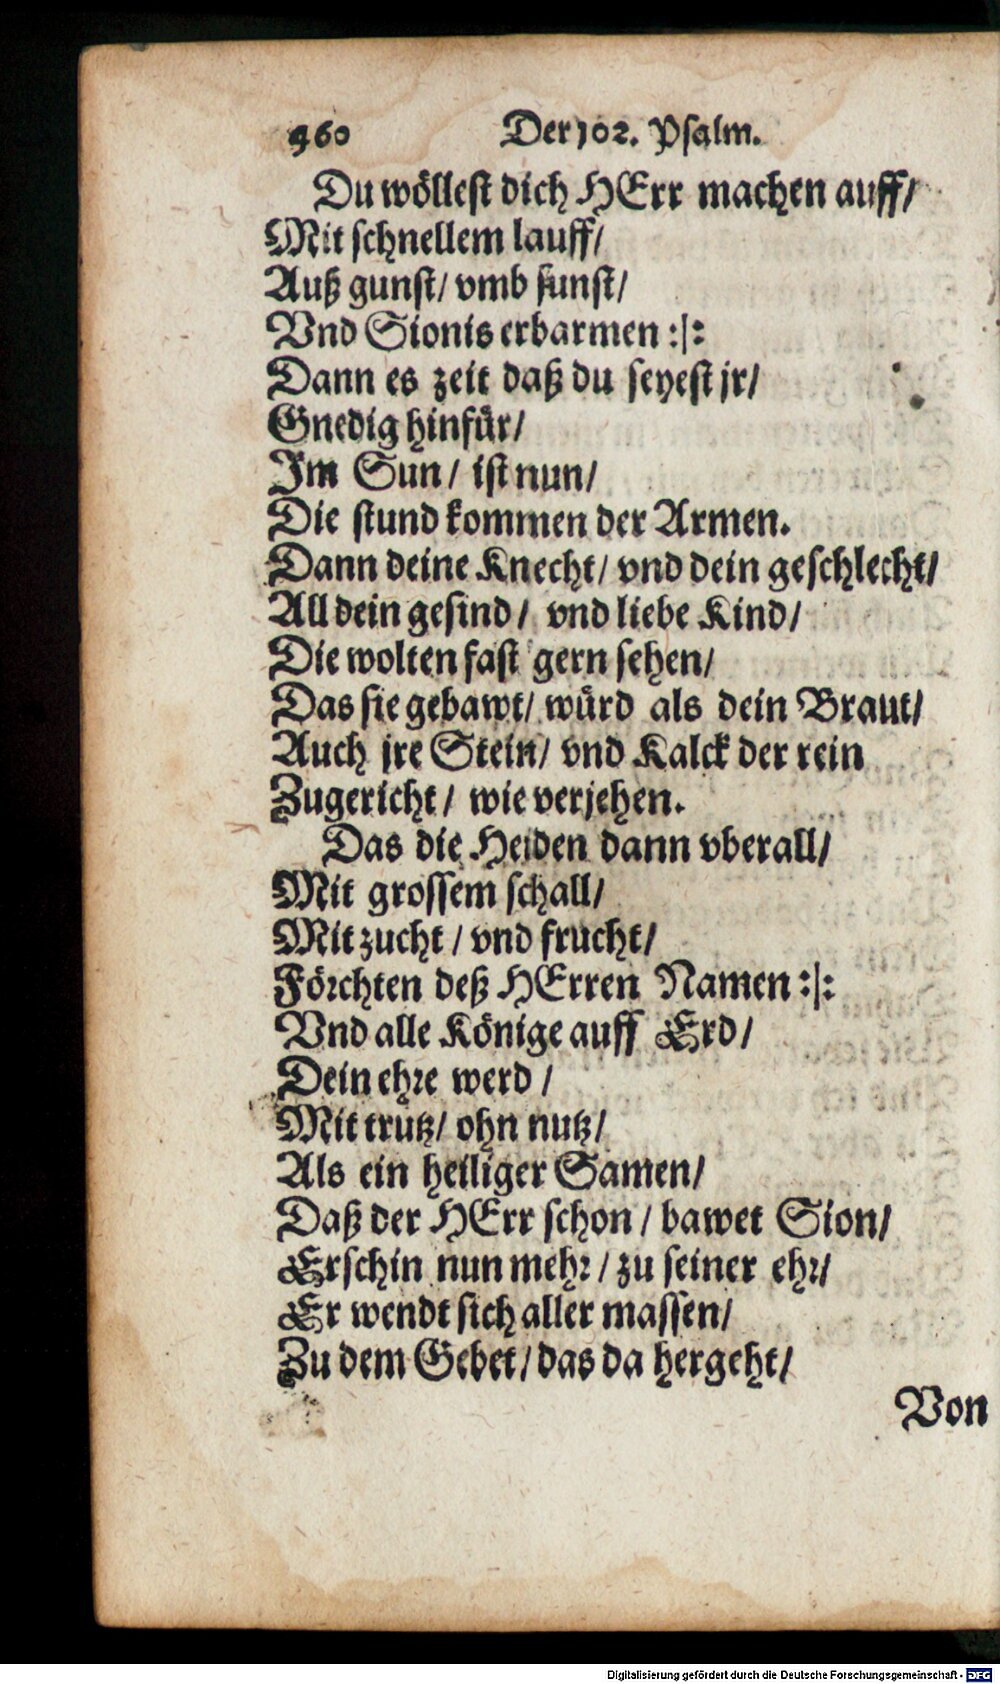 460 Der 102. Psalm.
Du wöllest dich HErr machen auff/
Mit schnellem lauff/
Auß gunst/ vmb sunst/
Vnd Sionis erbarmen :|:
Dann es zeit daß du seyest jr/
Gnedig hinfür/
Im Sun/ ist nun/
Die stund kommen der Armen.
Dann deine Knecht/ vnd dein geschlecht/
All dein gesind/ vnd liebe Kind/
Die wolten fast gern sehen/
Das sie gebawt/ würd als dein Braut/
Auch jre Stein/ vnd Kalck der rein
Zugericht/ wie verjehen.
Das die Heiden dann vberall/
Mit grossem schall/
Mit zucht/ vnd frucht/
Förchten deß HErren Namen :|:
Vnd alle Könige auff Erd/
Dein ehre werd/
Mit trutz/ ohn nutz/
Als ein heiliger Samen/
Daß der HErr schon/ bawet Sion/
Erschin nun mehr/ zu seiner ehr/
Er wendt sich aller massen/
Zu dem Gebet/ das da hergeht/
Von
Digitalisierung gefördert durch die Deutsche Forschungsgemeinschaft - DFG